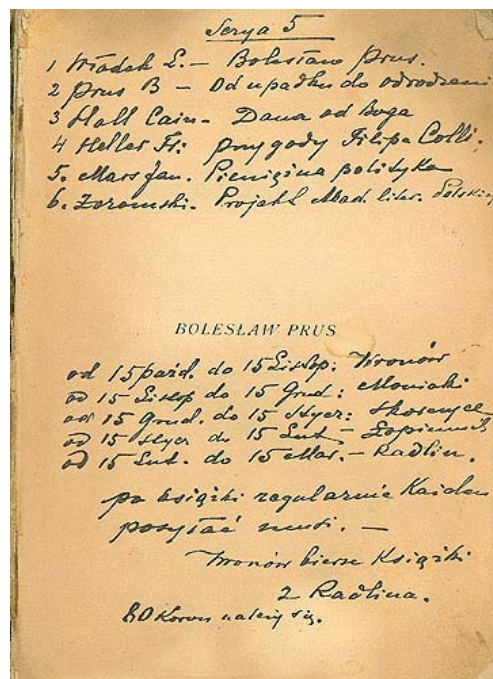 Serya 5
1 Władek L. – Bolesław Prus.
2 Prus B – Od upadku do odrodzeni
3 Hall Cain – Dana od Boga
4 Heller Fr: przygody Filipa Colli.
5. Mars Jan. Pieniężna polityka
6. Żeromski. Projekt Akad. liter. Polskiej
BOLESŁAW PRUS
od 15 paźd. do 15 Listop: Wronów
od 15 Listop do 15 Grud: Moniaki
od 15 Grud. do 15 Stycz:
od 15 Stycz do 15 Lut –
od 15 Lut. do 15 Mar. – Radlin.
po książki regularnie Każden
posyłać musi. –
Wronów bierze Książki
z Radlina.
80 Koron należy się.